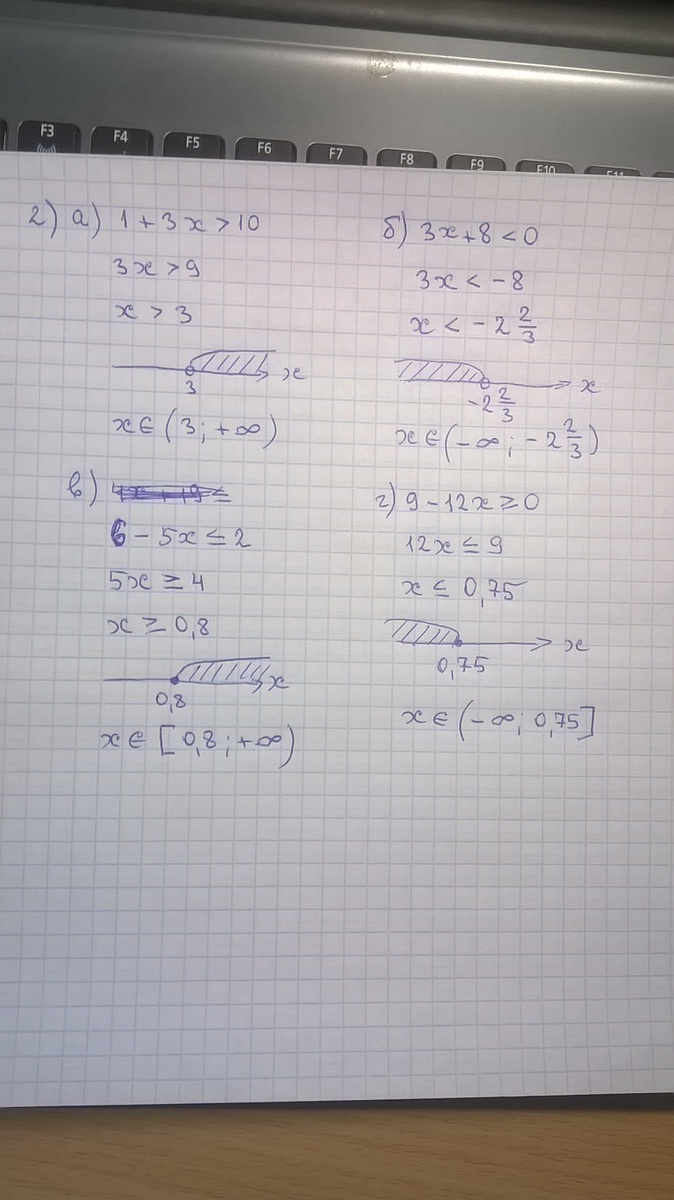 F3 F4 F5 F6 F7 F8 F9 F10 F11
2) а) 1 + 3x > 10
3x > 9
x > 3
3 x
x ∈ (3; +∞)
б) 3x + 8 < 0
3x < -8
x < -2 2/3
-2 2/3 x
x ∈ (-∞; -2 2/3)
в)
6 - 5x ≤ 2
5x ≥ 4
x ≥ 0,8
0,8 x
x ∈ [0,8; +∞)
г) 9 - 12x ≥ 0
12x ≤ 9
x ≤ 0,75
0,75 x
x ∈ (-∞; 0,75]